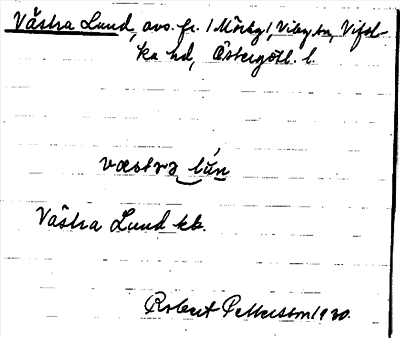 Västra Lund, avs. fr. 1 Mörby 1, Viby sn, Vifol-
ka hd, Östergötl. l.
væstra lún
Västra Lund kb.
Robert Pettersson 1930.